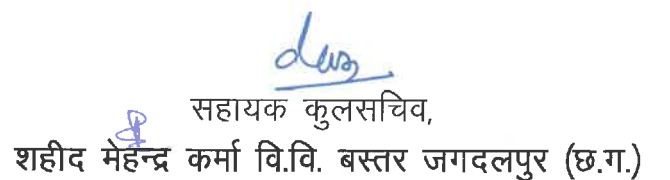 सहायक कुलसचिव,
शहीद मेहन्द्र कर्मा वि.वि. बस्तर जगदलपुर (छ.ग.)